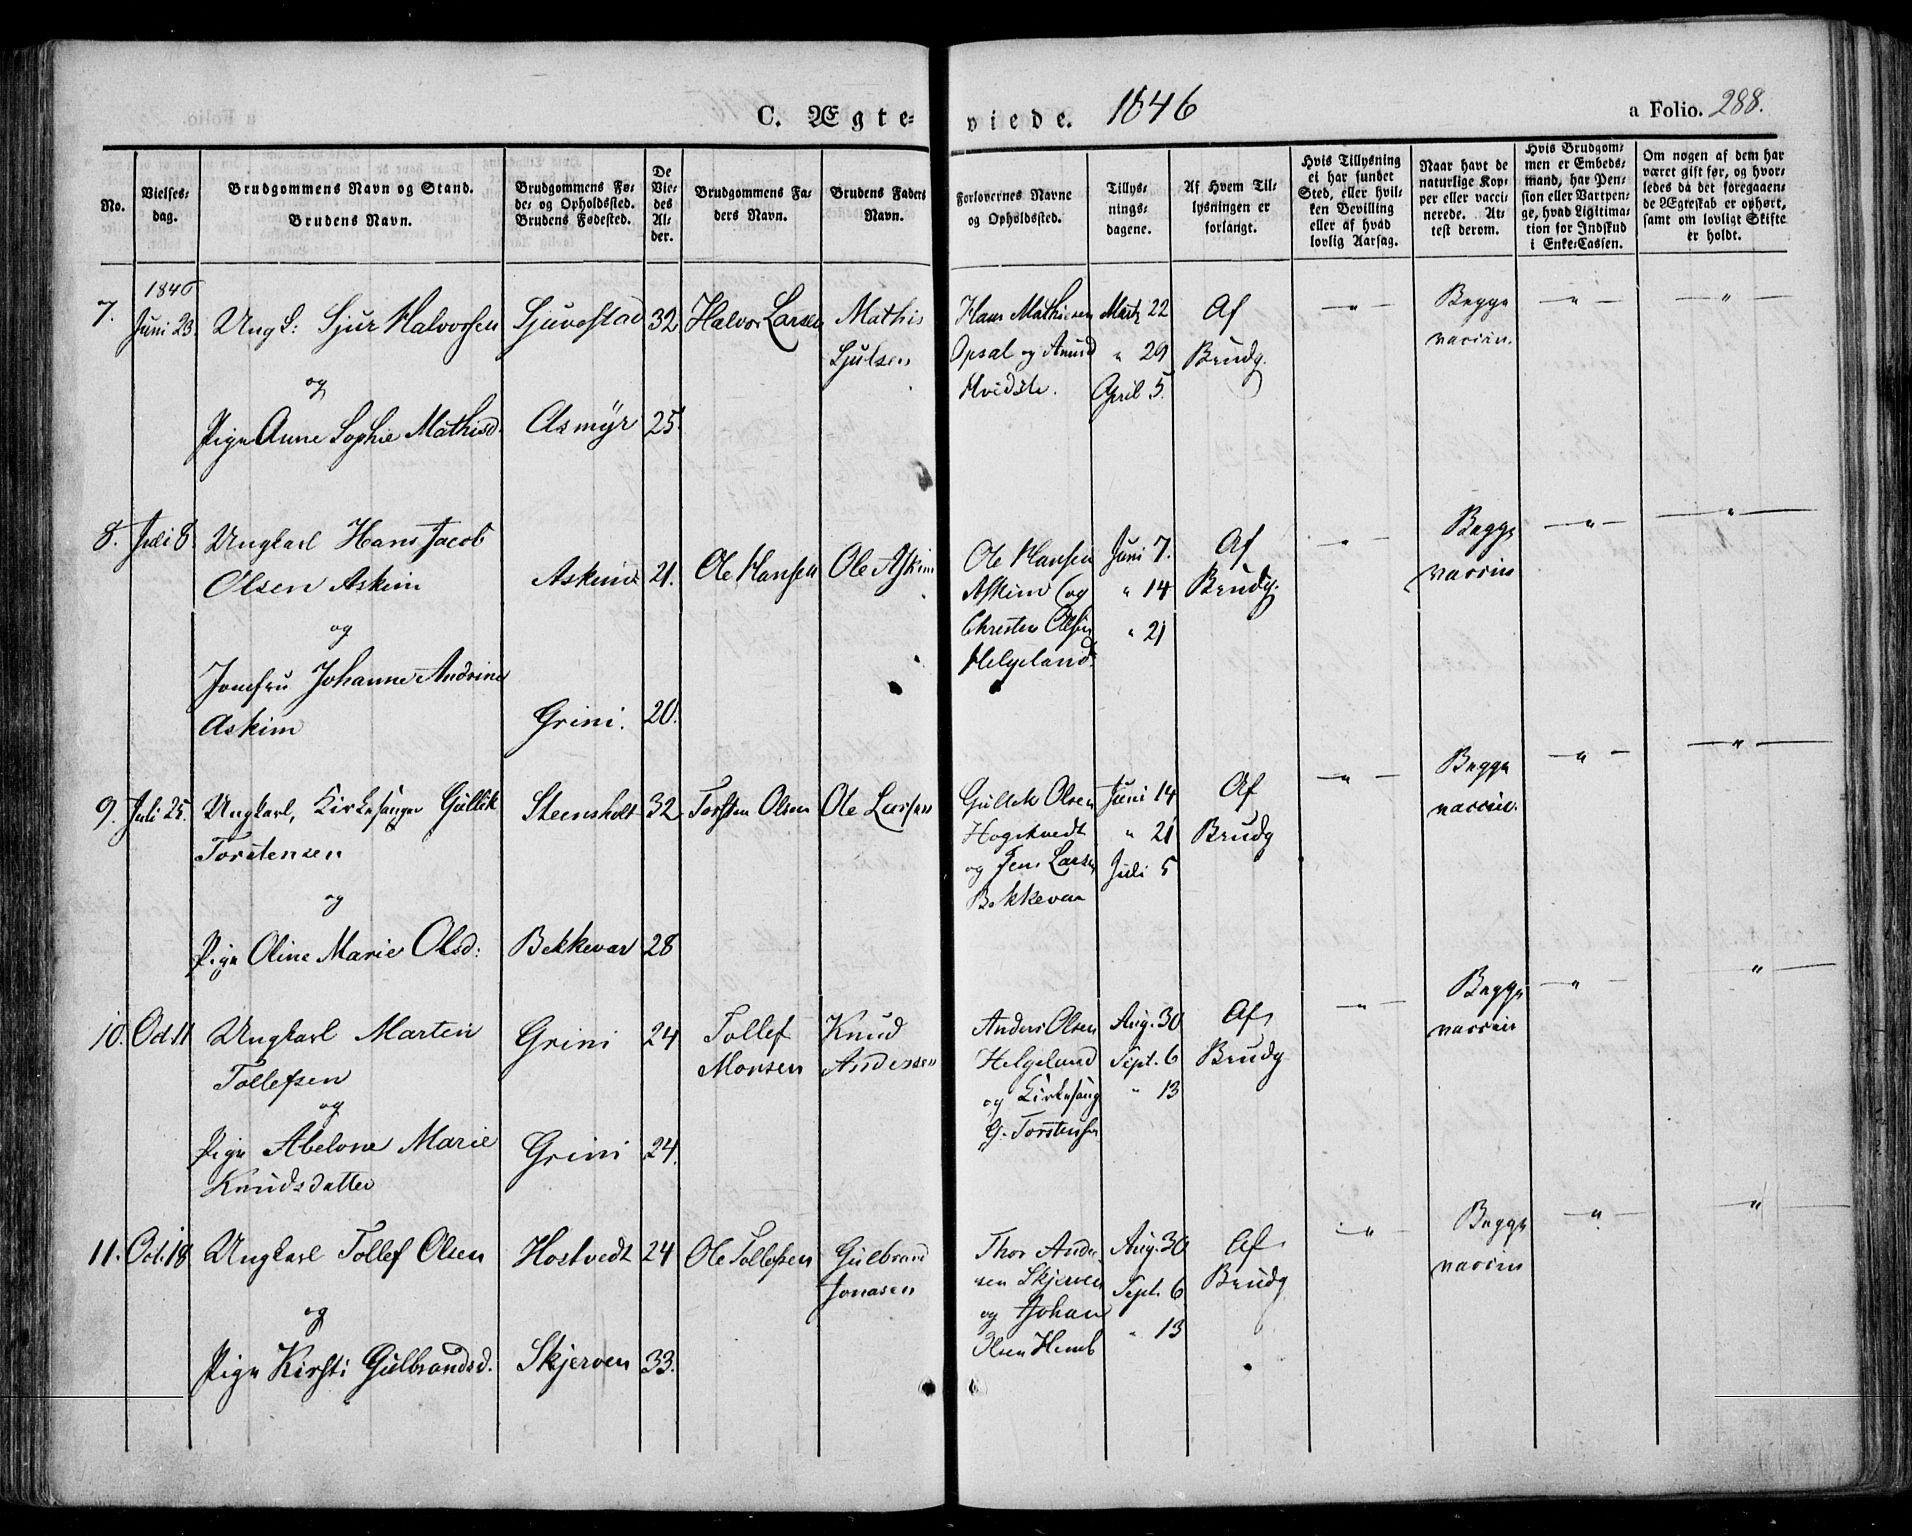 C. Ægteviede. 1846
a Folio. 288.
No.
Vielsesdag.
Brudgommens Navn og Stand.
Brudens Navn.
Brudgommens Føde- og Opholdssted.
Brudens Fødested.
De Viedes Alder.
Brudgommens Faders Navn.
Brudens Faders Navn.
Forlovernes Navne og Opholdssted.
Tillysningsdagene.
Af Hvem Tillysningen er forlangt.
Hvis Tillysning ei har fundet Sted, eller hvilken Bevilling eller af hvad lovlig Aarsag.
Naar havt de naturlige Kopper eller vaccinerede. Attest derom.
Hvis Brudgommen er Embedsmand, har Pension eller Vartpenge, hvad Ligitimation for Indskud i Enke-Cassen.
Om nogen af dem har været gift før, og hvorledes da det foregaaende Ægteskab er ophørt, samt om lovligt Skifte er holdt.
1846
7. Juni 23. Ungk: Sjur Halvorsen Sjuvestad 32 Halvor Larsen Mathis Hans Mathiesen Martz 22 Af — " — Begge — " — — " —
Sjulsen Opsal og Anund " 29 Brudg. vaccin.
og Hvidste. April 5.
Pige Anne Sophie Mathisd. Asmyr 25.
8. Juli 8. Ungkarl Hans Jacob Ole Hansen Juni 7. Af — " — Begge — " — — " —
Olsen Askim Askim 21. Ole Hansen Ole Askim Askim og " 14 Brudg. vaccin
og Christen Olsen " 21
Jomfru Johanne Andrine Helgeland
Askim Grini. 20.
9. Juli 25. Ungkarl, Kirkesanger Gullik Steensholt 32. Torsten Olsen Ole Larsen Gullik Olsen Juni 14 Af — " — Begge — " — — " —
Torstensen Hogstvedt " 21 Brudg vaccin.
og Jens Larsen Juli 5
og Bekkevar
Pige Oline Marie Olsd: Bekkevar 28
10. Oct. 11 Ungkarl Marten Grini 24 Tollef Knud Anders Olsen Aug. 30 Af — " — Begge — " — — " —
Tollefsen Monsen Andersen Helgeland Sept. 6 Brudg vaccin
og og Kirkesang " 13
Pige Abelone Marie Grini 24. G. Torstensen
Knudsdatter
11. Oct. 18 Ungkarl Tollef Olsen Hostvedt 24 Ole Tollefsen Gulbrand Thor Ander Aug. 30 Af — " — Begge — " — "
Jonasen sen Skjerven Sept. 6 Brudg vaccin
og og Johan " 13
Pige Kirsti Gulbrandsd. Skjerven 33. Olsen Hemb